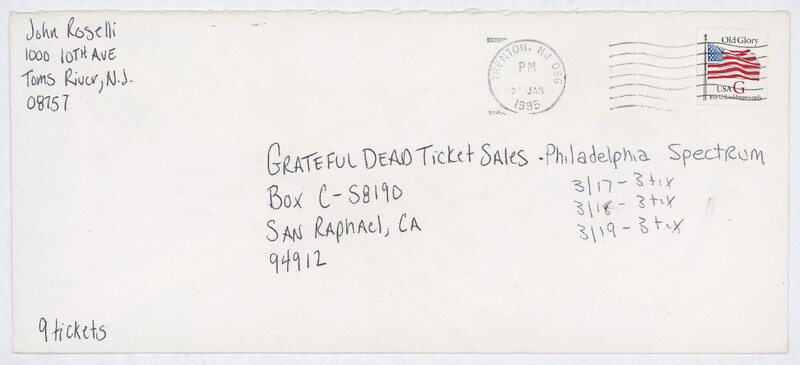 John Roselli
1000 10TH AVE
Toms River, N.J.
08757
TRENTON, NJ 086
PM
27 JAN
1995
Old Glory
USA G
For U.S. addresses only
GRATEFUL DEAD Ticket SALES - Philadelphia Spectrum
Box C-S8190
SAN RAPHAEl, CA
94912
3/17 - 3 tix
3/18 - 3 tix
3/19 - 3 tix
9 tickets